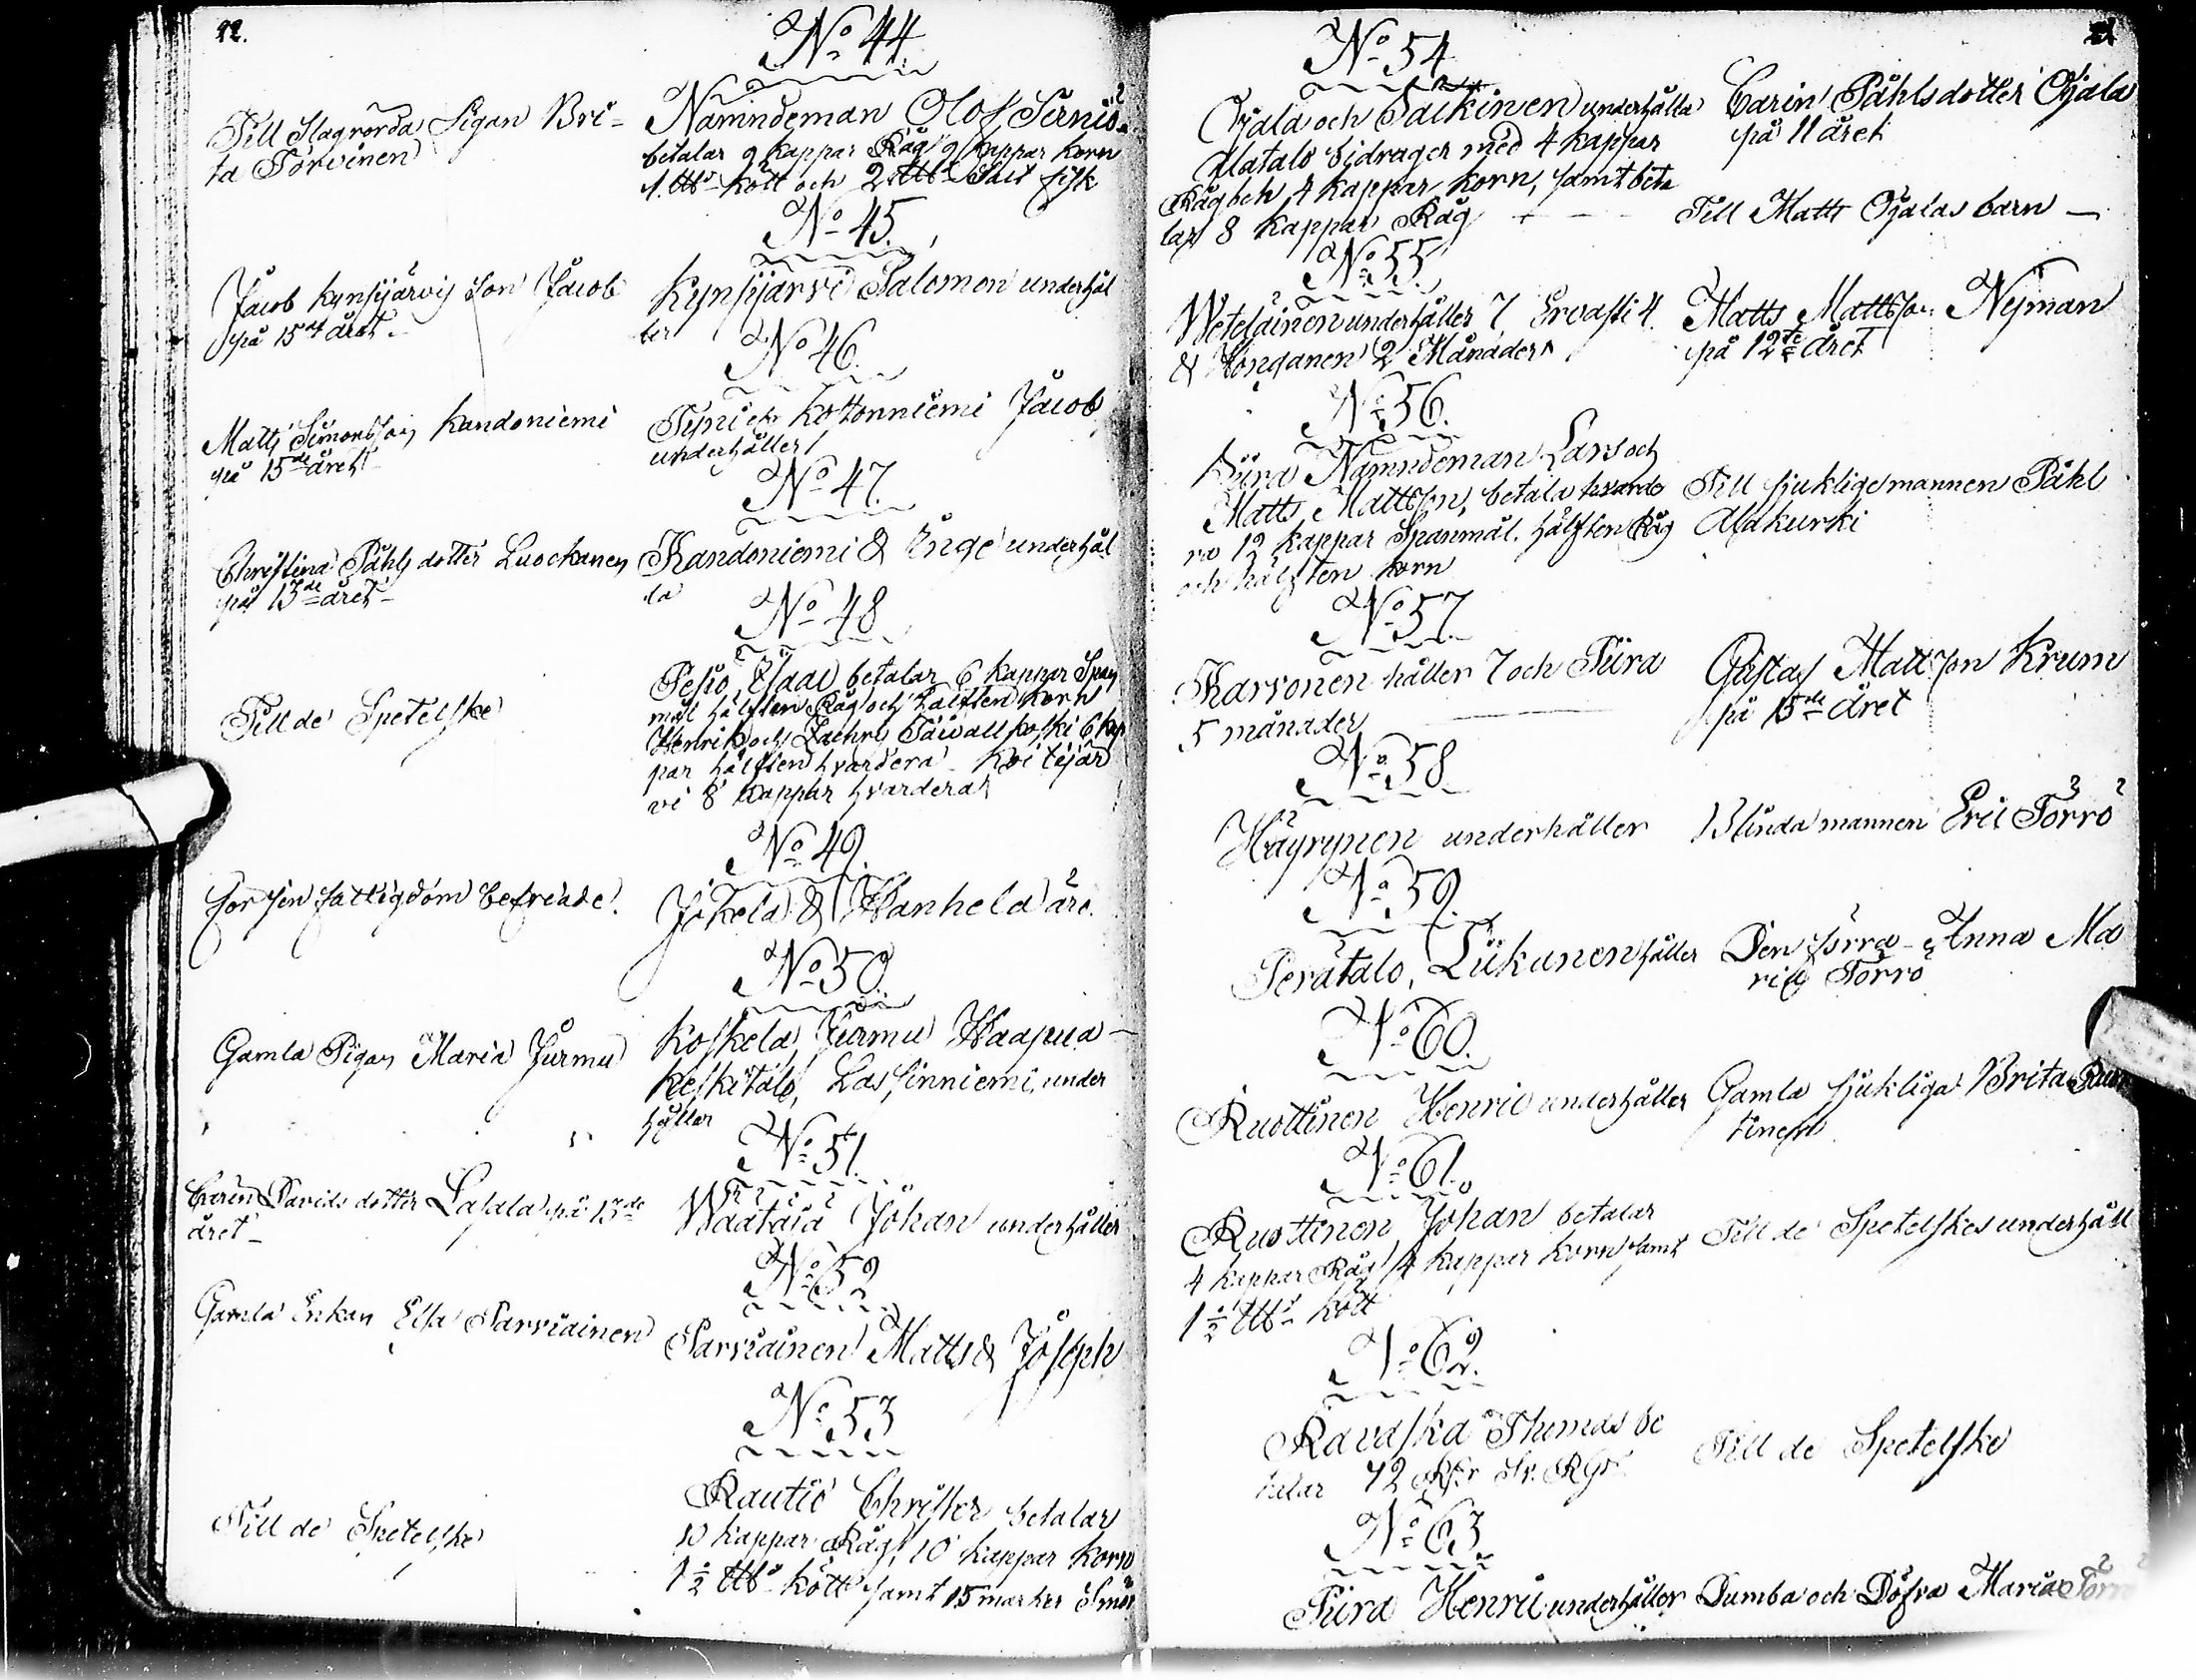 22.
No 44
Till Slagrörda Pigan Bri-
ta Törvinen
Nämndeman Olof Särniö
betalar 9 kappar Råg 9 kappar korn
1. ltb kött och 2 ltb Salt fisk
No 45.
Jacob Kynsijärvis Son Jacob
på 15de året
Kynsijärvi Salomon underhål
ler
No 46.
Matts Simonsson Kandoniemi
på 15de året
Kottonniemi Jacob
underhåller
No 47.
Christina Påhlsdotter Luockanen
på 13de året
Kandoniemi & Inge underhål
la
No 48
Till de Spetelske
Pesio Isaac betalar 6 kappar Span
mål hälften Råg och hälften Korn
Henrik och Zachris Taivallkoski 6 kap
par hälften hvardera Koitijär
vi 8 kappar hvardera
No 49.
för sin fattigdom befriade.
Jokela & Wanhela äro.
No 50.
Gamla Pigan Maria Jurmu
Koskela Jurmu Haapua-
Keskitalo, Lassinniemi, under
håller
No 51.
Carin Davids dotter Lasala på 13de
året
Wäätäjä Johan underhåller
No 52
Gamla Enkan Elsa Sarviainen
Sarviainen Matts & Joseph
No 53
Till de Spetelske
Rautio Christer betalar
10 kappar Råg, 10 kappar korn
1 1/2 ltb kött samt 15 marker Smör
No 54
Ojala och Paikinen underhålla
Alatalo bidrager med 4 kappar
Råg och 4 kappar korn, samt beta
lar 8 kappar Råg
Carin Påhlsdotter Ojala
på 11 året
Till Matts Ojalas barn
No 55
Weteläinen underhåller 7, Ervasti 4.
& Honganen 2 Månader
Matts Mattsson Nyman
på 12te året
No 56.
Nämndeman Lars och
Matts Mattsson, betala hvarde
ra 12 kappar Spanmål. hälften Råg
och hälften korn
Till sjuklige mannen Påhl
Alakurki
No 57.
Karvonen håller 7 och Piira
5 månader
Gustaf Mattsson Krum
på 15de året
No 58.
Häyrynen underhåller
Blinda mannen Eric Törrö
No 59.
Perätalo, Liikanen håller
Den Anna Ma
ria Törrö
No 60.
Ruottinen Henric underhåller
Gamla sjukliga Brita Ruot
tinen
No 61.
Ruottinen Johan betalar
4 kappar Råg 4 kappar korn samt
1 1/2 ltb kött
Till de Spetelskes underhåll
No 62.
Ravaska Thomas be
talar 12
Till de Spetelske
No 63
Piira Henric underhåller
Dumba och Döfva Maria Törrö